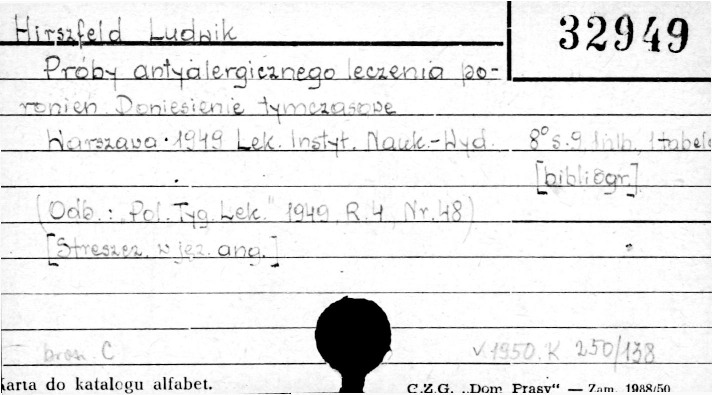 Hirszfeld Ludwik
32949
Próby antyalergicznego leczenia po-
ronień Doniesienie tymczasowe
Warszawa 1949 Lek. Instyt. Nauk.-Wyd. 8° s. 9, 1 tabela
[bibliogr.]
(Odb.: „Pol. Tyg. Lek." 1949, R. 4, Nr. 48)
[Streszcz. w jęz. ang.]
brosz. C
V 1950. K 250/138
karta do katalogu alfabet.
C.Z.G. „Dom Prasy“ — Zam. 1988/50